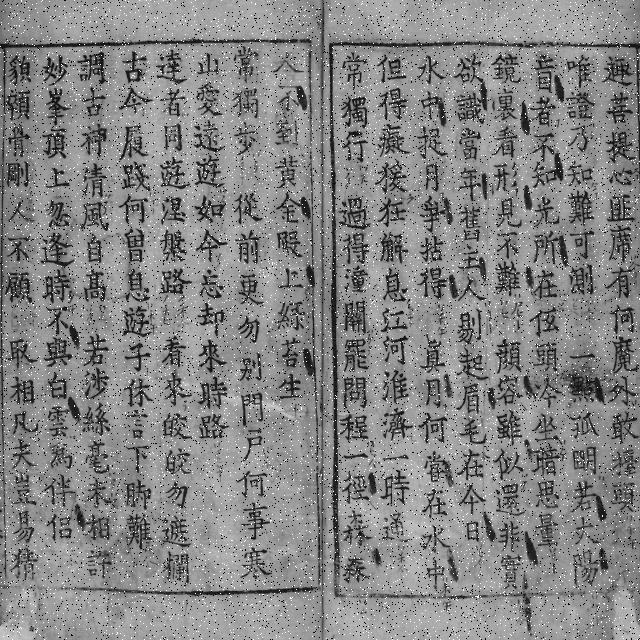 趣菩提心匪席有何魔外敢擡頭
唯證方知難可測 一點孤明若太陽
昔者不知光所在 低頭冷坐暗思量
鏡裏看形見不難 顏容雖似還非實
欲識當年舊主人 剔起眉毛在今日
水中捉月爭拈得 真月何嘗在水中
但得癡猿狂解息 江河淮濟一時通
常獨行 過得潼關罷問程 一徑森森
六不到黃金殿上綠苔生
常獨步 從前更勿別門戶 何事寒
山愛遠遊 如今忘却來時路
達者同遊涅槃路 看來皎皎勿遮欄
古今履踐何曾息 遊子休言下脚難
調古神清風自高 若涉絲毫未相許
妙峯頂上忽逢時 不與白雲爲伴侶
貌顇骨剛人不顧 取相凡夫豈易猜